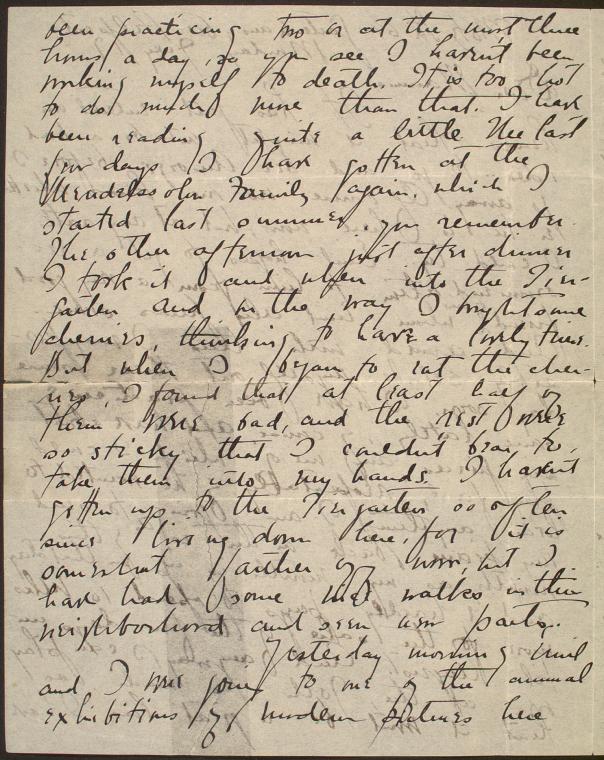 been practicing two or at the most three
hours a day, so you see I haven't been
working myself to death. It is too hot
to do much more than that. I have
been reading quite a little the last
few days. I have gotten at the
Mendelssohn Family again, which I
started last summer, you remember.
The other afternoon just after dinner
I took it and went into the Tier-
garten and on the way I bought some
cherries, thinking to have a lovely time.
But when I began to eat the cher-
ries, I found that at least half of
them were bad, and the rest were
so sticky that I couldn't bear to
take them into my hands. I haven't
gotten up to the Tiergarten so often
since living down here, for it is
somewhat farther off now, but I
have had some nice walks in this
neighborhood and seen new parts.
Yesterday morning
and I were going to one of the annual
exhibitions of modern pictures here